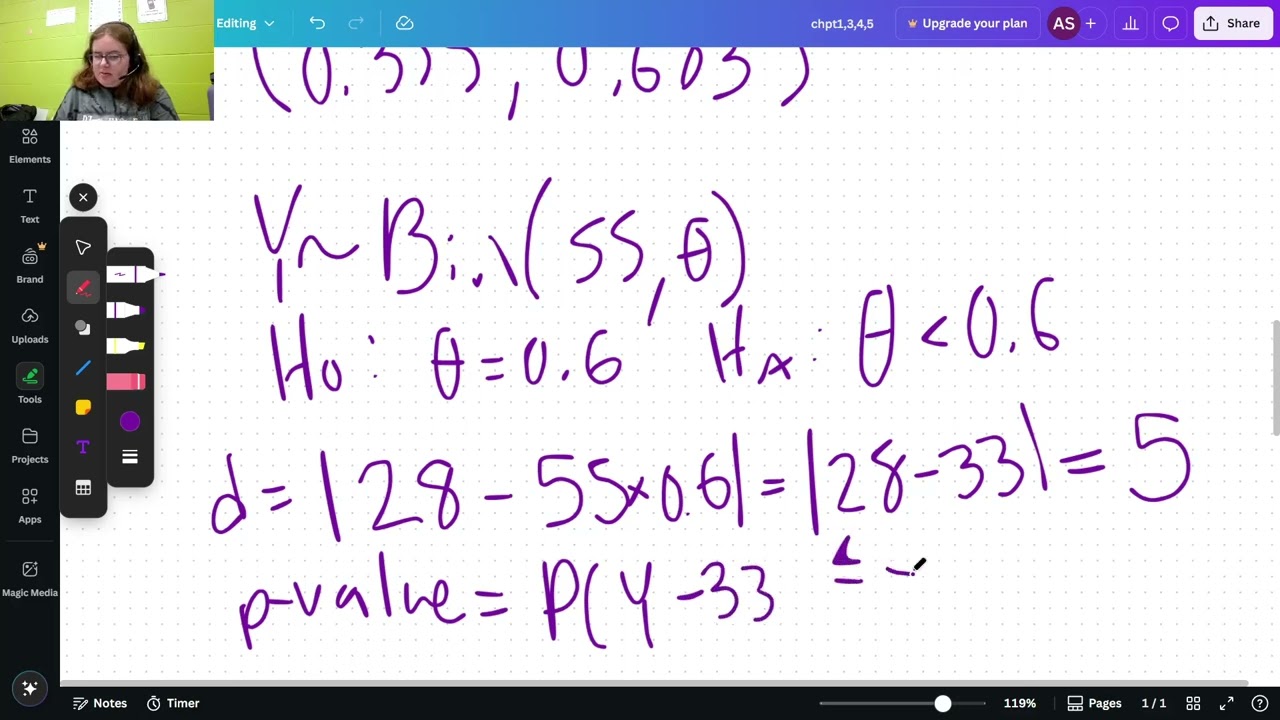 Editing
chpt1,3,4,5
Upgrade your plan
AS
Share
Elements
Text
Brand
Uploads
Tools
Projects
Apps
Magic Media
T
Y ~ Bin(55, θ)
H0: θ = 0.6 HA: θ < 0.6
d = |28 - 55×0.6| = |28 - 33| = 5
p-value = P(Y - 33 ≤ -
Notes
Timer
119%
Pages
1 / 1